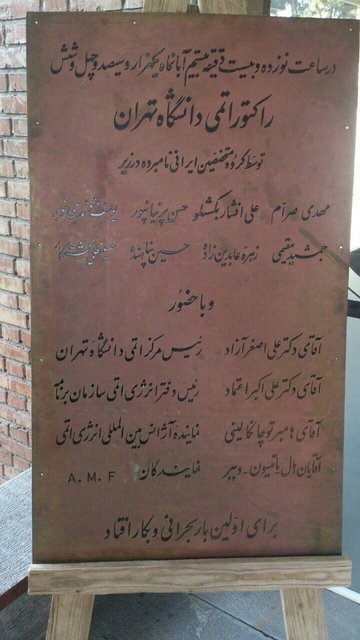 در ساعت نوزده و بیست دقیقه بیستم آبانماه یکهزار و سیصد و چهل و شش
راکتور اتمی دانشگاه تهران
توسط گروه متخصصین ایرانی نامبرده در زیر
مهدی صرام علی افشار بکشلو حسن پرنیانپور یوسف
جمشید مقیمی زهره عابدین زاده حسین پناهنده حسینعلی
و با حضور
آقای دکتر علی اصغر آزاد رئیس مرکز اتمی دانشگاه تهران
آقای دکتر علی اکبر اعتماد رئیس دفتر انرژی اتمی سازمان برنامه
آقای هامبرتو چانکالینی نماینده آژانس بین المللی انرژی اتمی
آقایان دل پاتیسون - وبیر نمایندگان A.M.F
برای اولین بار بحرانی و بکار افتاد